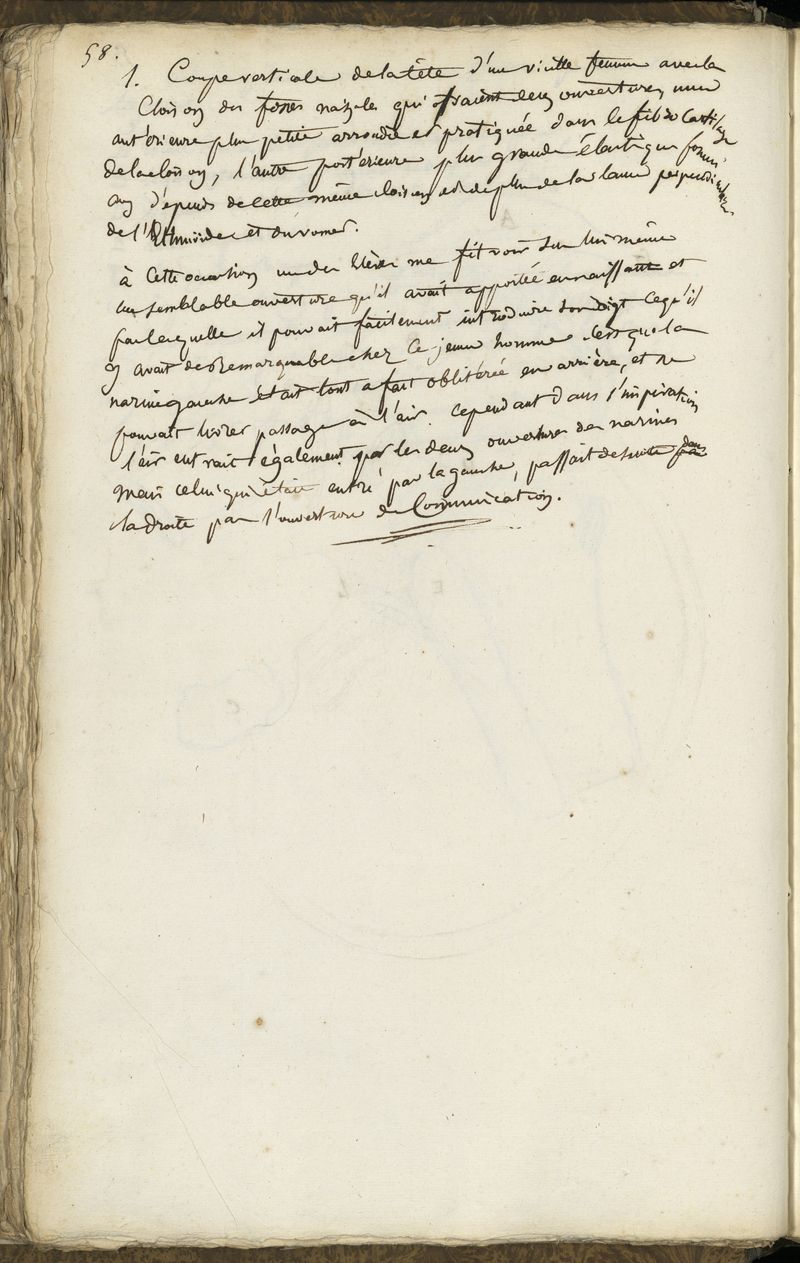 58.
1. Coupe verticale de la tête d'une vieille femme avec la
Cloison des fosses nazales qui offraient deux ouvertures, une
antérieure plus petite arrondie et pratiquée dans le fibro Cartilage
de la cloison, l'autre postérieure plus grande élastique formée
aux dépends de cette même cloison et de plus de la lame perpendiculaire
de l'Ethmoïde et du vomer.
à Cette occasion un des Elèves me fit voir sur lui même
une semblable ouverture qu'il avait apportée en naissant et
par laquelle il pouvait facilement introduire son doigt Ce qu'il
y avait de Remarquable chez Ce jeune homme c'est que la
narine gauche était tout a fait oblitérée en arrière, et ne
pouvait livrer passage à l'air. Cependant dans l'inspiration
l'air entrait également par les deux ouvertures des narines
mais celui qui était entré par la gauche, passait de suite dans
la droite par l'ouverture de Communication.